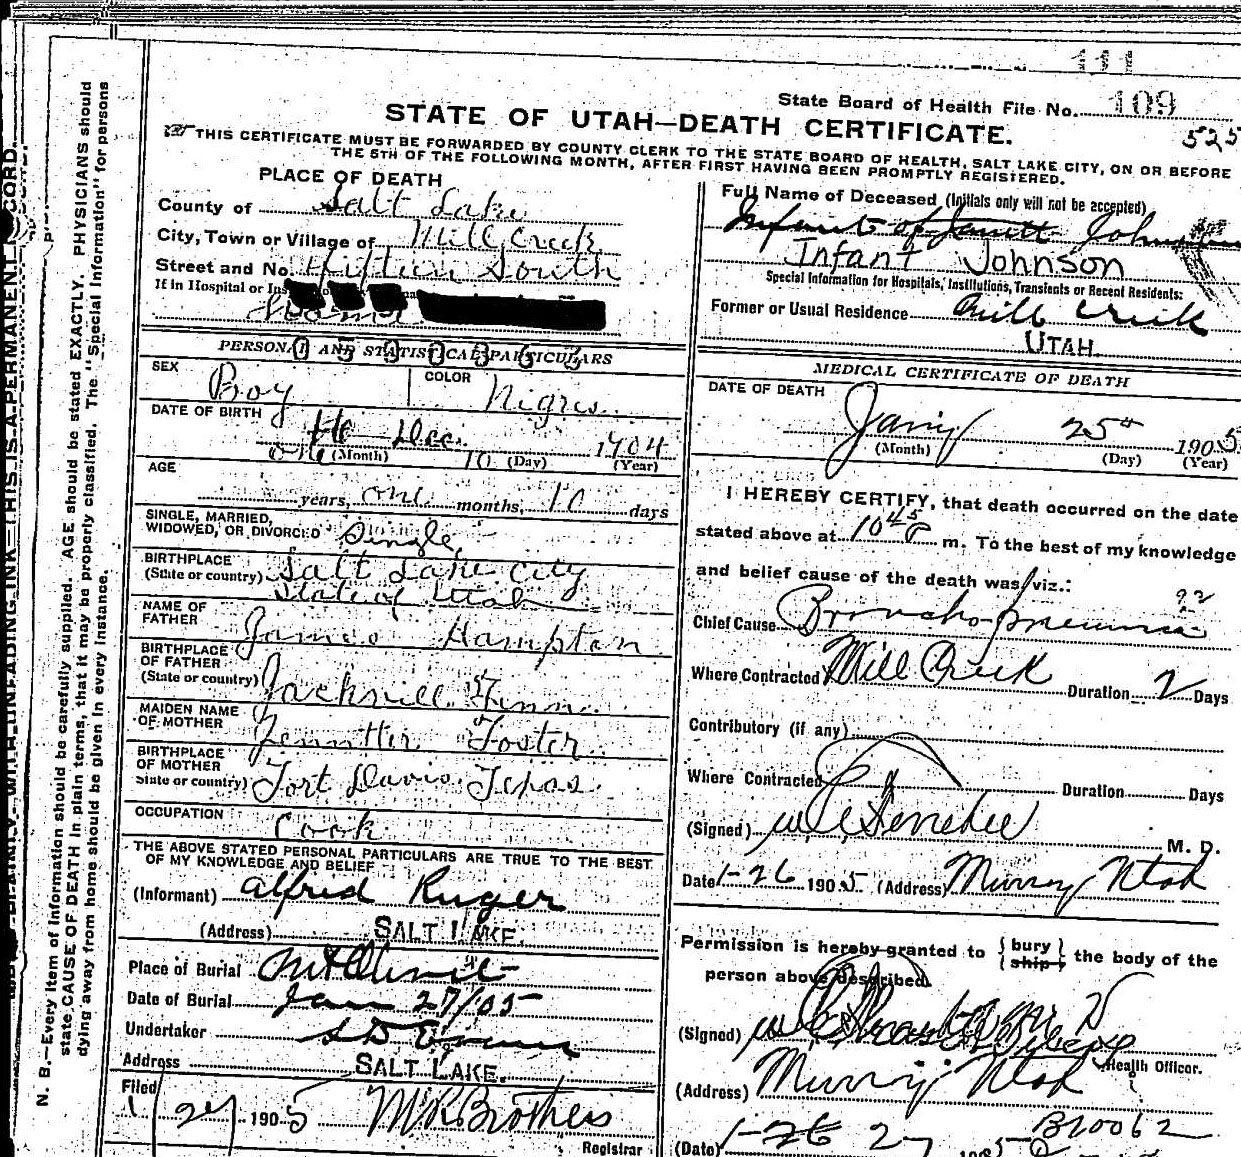 111
State Board of Health File No. 109
525
STATE OF UTAH—DEATH CERTIFICATE.
THIS CERTIFICATE MUST BE FORWARDED BY COUNTY CLERK TO THE STATE BOARD OF HEALTH, SALT LAKE CITY, ON OR BEFORE
THE 5TH OF THE FOLLOWING MONTH, AFTER FIRST HAVING BEEN PROMPTLY REGISTERED.
PLACE OF DEATH
County of Salt Lake
City, Town or Village of Mill Creek
Street and No. Fifteen South
If in Hospital or
Home
PERSONAL AND STATISTICAL PARTICULARS
SEX Boy
COLOR Nigro
DATE OF BIRTH
Dec. 1904
one (Month) 10 (Day) (Year)
AGE
years, one months, 10 days
SINGLE, MARRIED,
WIDOWED, OR DIVORCED Single
BIRTHPLACE
(State or country) Salt Lake City
State of Utah
NAME OF
FATHER James Hampton
BIRTHPLACE
OF FATHER
(State or country) Jackvill Finn
MAIDEN NAME
OF MOTHER Jennttir Foster
BIRTHPLACE
OF MOTHER
State or country) Fort Davis Texas
OCCUPATION
Cook
THE ABOVE STATED PERSONAL PARTICULARS ARE TRUE TO THE BEST
OF MY KNOWLEDGE AND BELIEF
(Informant) Alfred Kuger
(Address) SALT LAKE.
Place of Burial Mt Olivet
Date of Burial Jan 27/05
Undertaker S D Evans
Address SALT LAKE.
Filed
1/27 1905 M R Brothers
Registrar
Full Name of Deceased (Initials only will not be accepted)
Infant of Janett Johnson
Infant Johnson
Special Information for Hospitals, Institutions, Transients or Recent Residents:
Former or Usual Residence Mill Creek
UTAH.
MEDICAL CERTIFICATE OF DEATH
DATE OF DEATH
Jany 25th 1905
(Month) (Day) (Year)
I HEREBY CERTIFY, that death occurred on the date
stated above at 10 45 P m. To the best of my knowledge
and belief cause of the death was viz.:
92
Chief Cause Broncho-pneumnia
Where Contracted Mill Creek Duration 2 Days
Contributory (if any)
Where Contracted Duration Days
(Signed) M. D.
Date 1-26 1905 (Address) Murray Utah
Permission is hereby granted to { bury ship } the body of the
person above described.
(Signed)
Health Officer.
(Address) Murray Utah
B20062
(Date) 1-26 27 1905
N. B.—Every item of information should be carefully supplied. AGE should be stated EXACTLY. PHYSICIANS should
state CAUSE OF DEATH in plain terms, that it may be properly classified. The "Special Information" for persons
dying away from home should be given in every instance.
WITH UNFADING INK—THIS IS A PERMANENT RECORD.